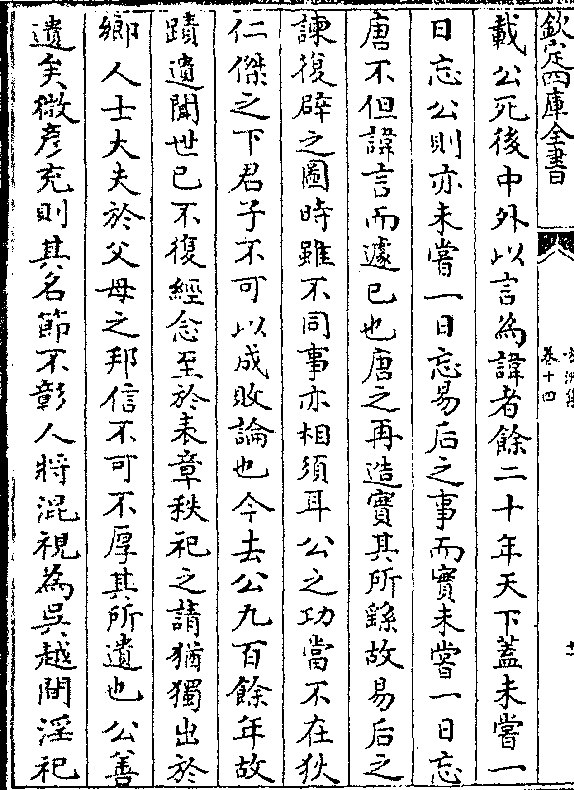 欽定四庫全書
卷十四
載公死後中外以言為諱者餘二十年天下蓋未嘗一
日忘公則亦未嘗一日忘易后之事而實未嘗一日忘
唐不但諱言而遽已也唐之再造實其所繇故易后之
諫復辟之圖時雖不同事亦相須耳公之功當不在狄
仁傑之下君子不可以成敗論也今去公九百餘年故
蹟遺聞世已不復經念至於表章秩祀之請猶獨出於
鄉人士大夫於父母之邦信不可不厚其所遺也公善
遺矣微彥充則其名節不彰人將混視為吳越間淫祀